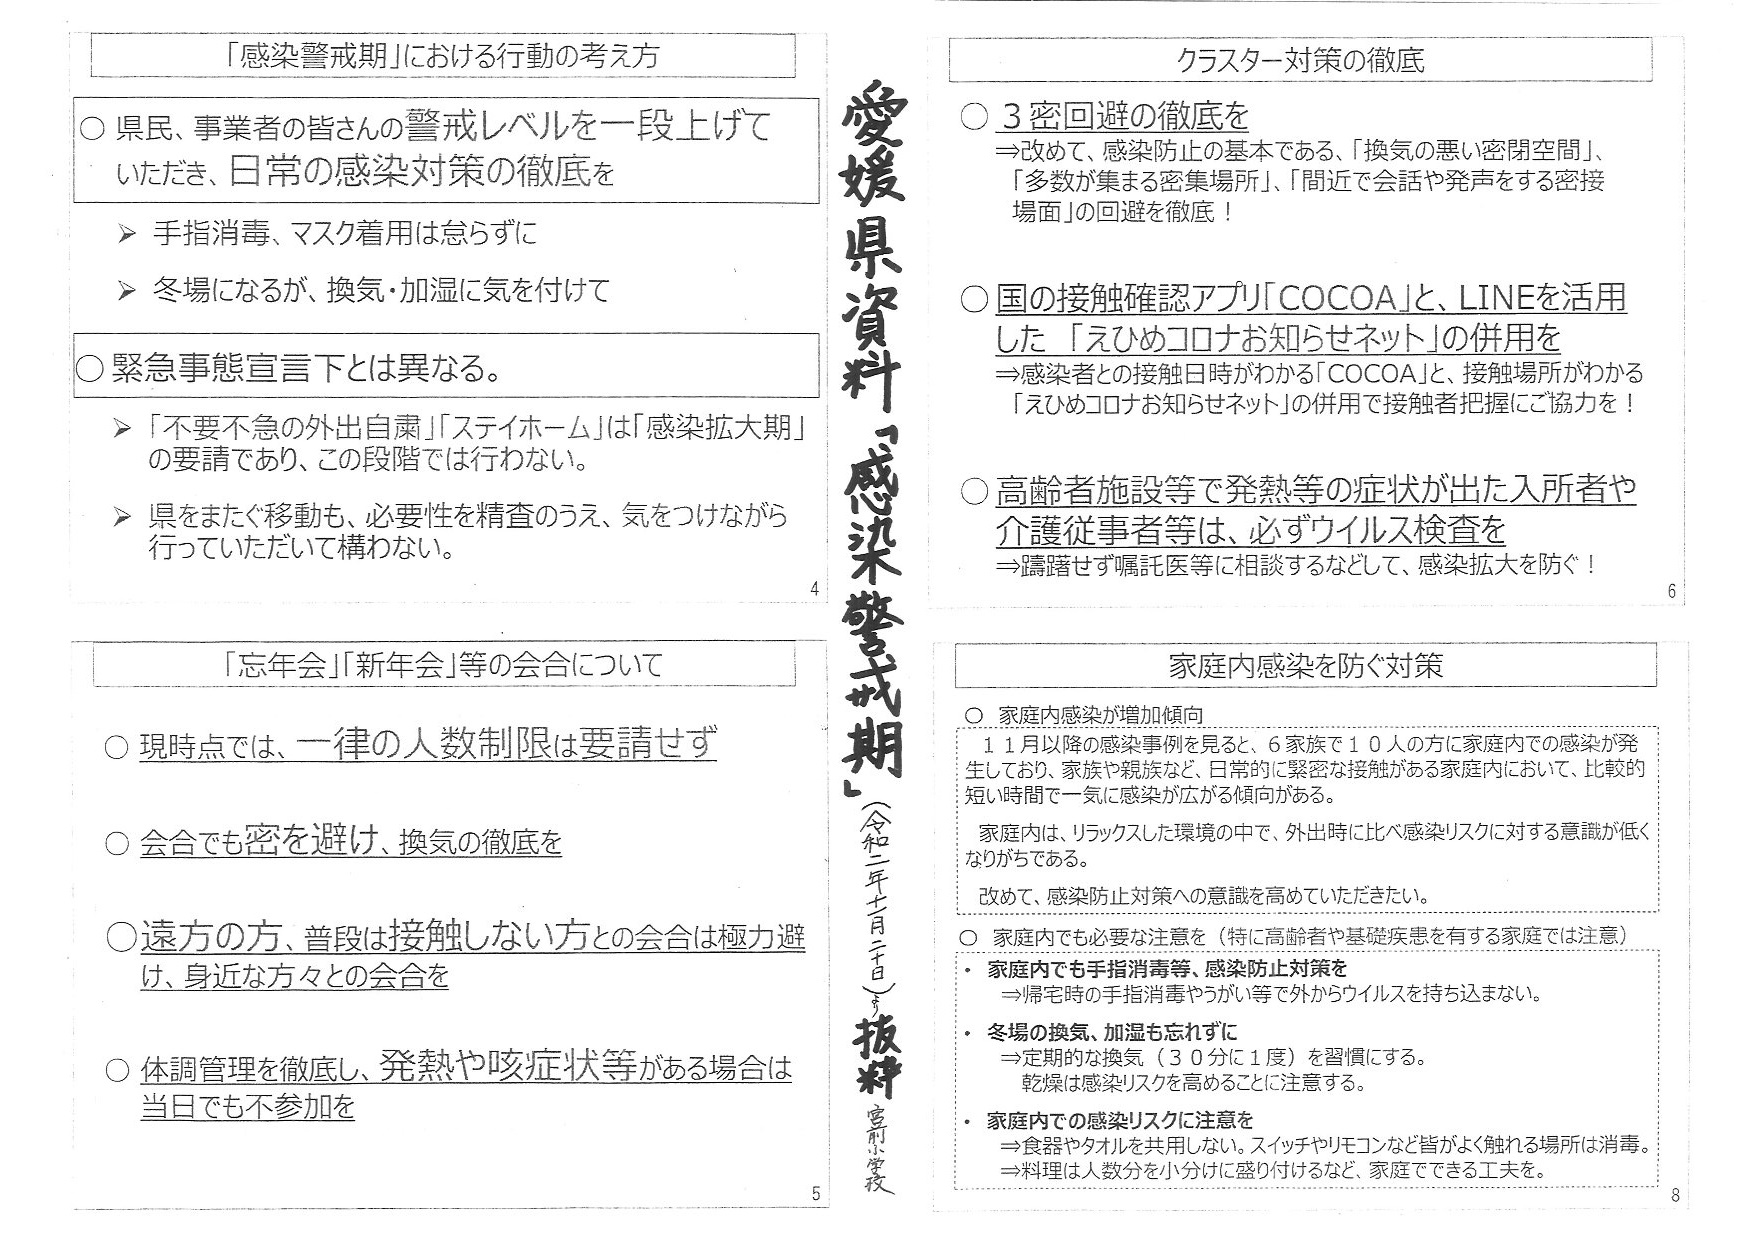 「感染警戒期」における行動の考え方
○ 県民、事業者の皆さんの警戒レベルを一段上げて
いただき、日常の感染対策の徹底を
➢ 手指消毒、マスク着用は怠らずに
➢ 冬場になるが、換気・加湿に気を付けて
○ 緊急事態宣言下とは異なる。
➢ 「不要不急の外出自粛」「ステイホーム」は「感染拡大期」
の要請であり、この段階では行わない。
➢ 県をまたぐ移動も、必要性を精査のうえ、気をつけながら
行っていただいて構わない。
4
「忘年会」「新年会」等の会合について
○ 現時点では、一律の人数制限は要請せず
○ 会合でも密を避け、換気の徹底を
○ 遠方の方、普段は接触しない方との会合は極力避
け、身近な方々との会合を
○ 体調管理を徹底し、発熱や咳症状等がある場合は
当日でも不参加を
5
愛媛県資料「感染警戒期」(令和二年十一月二十日)より抜粋 宮前小学校
クラスター対策の徹底
○ ３密回避の徹底を
⇒改めて、感染防止の基本である、「換気の悪い密閉空間」、
「多数が集まる密集場所」、「間近で会話や発声をする密接
場面」の回避を徹底！
○ 国の接触確認アプリ「COCOA」と、LINEを活用
した 「えひめコロナお知らせネット」の併用を
⇒感染者との接触日時がわかる「COCOA」と、接触場所がわかる
「えひめコロナお知らせネット」の併用で接触者把握にご協力を！
○ 高齢者施設等で発熱等の症状が出た入所者や
介護従事者等は、必ずウイルス検査を
⇒躊躇せず嘱託医等に相談するなどして、感染拡大を防ぐ！
6
家庭内感染を防ぐ対策
○ 家庭内感染が増加傾向
１１月以降の感染事例を見ると、６家族で１０人の方に家庭内での感染が発
生しており、家族や親族など、日常的に緊密な接触がある家庭内において、比較的
短い時間で一気に感染が広がる傾向がある。
家庭内は、リラックスした環境の中で、外出時に比べ感染リスクに対する意識が低く
なりがちである。
改めて、感染防止対策への意識を高めていただきたい。
○ 家庭内でも必要な注意を（特に高齢者や基礎疾患を有する家庭では注意）
・ 家庭内でも手指消毒等、感染防止対策を
⇒帰宅時の手指消毒やうがい等で外からウイルスを持ち込まない。
・ 冬場の換気、加湿も忘れずに
⇒定期的な換気（３０分に１度）を習慣にする。
乾燥は感染リスクを高めることに注意する。
・ 家庭内での感染リスクに注意を
⇒食器やタオルを共用しない。スイッチやリモコンなど皆がよく触れる場所は消毒。
⇒料理は人数分を小分けに盛り付けるなど、家庭でできる工夫を。
8